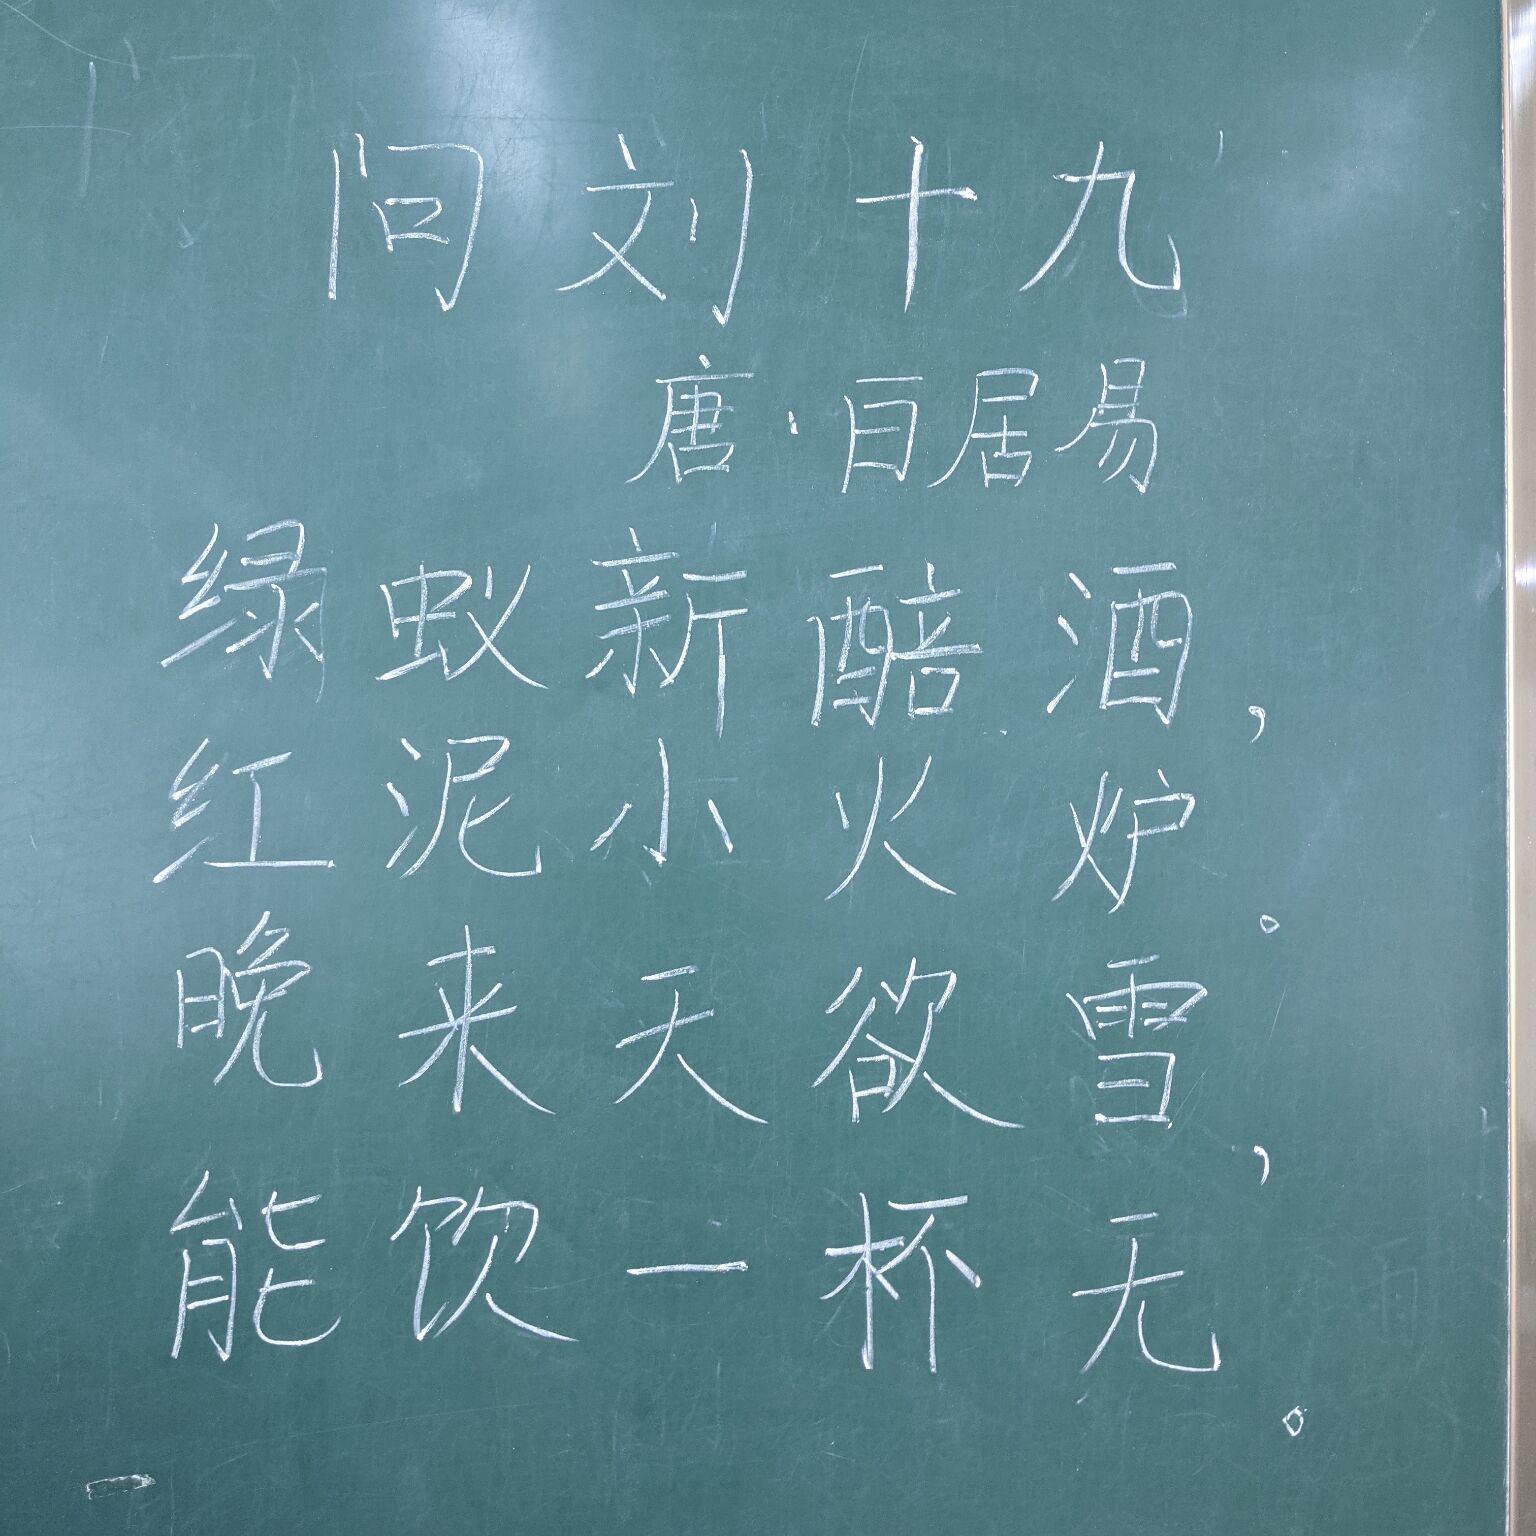 问刘十九
唐·百居易
绿蚁新醅酒,
红泥小火炉。
晚来天欲雪,
能饮一杯无。